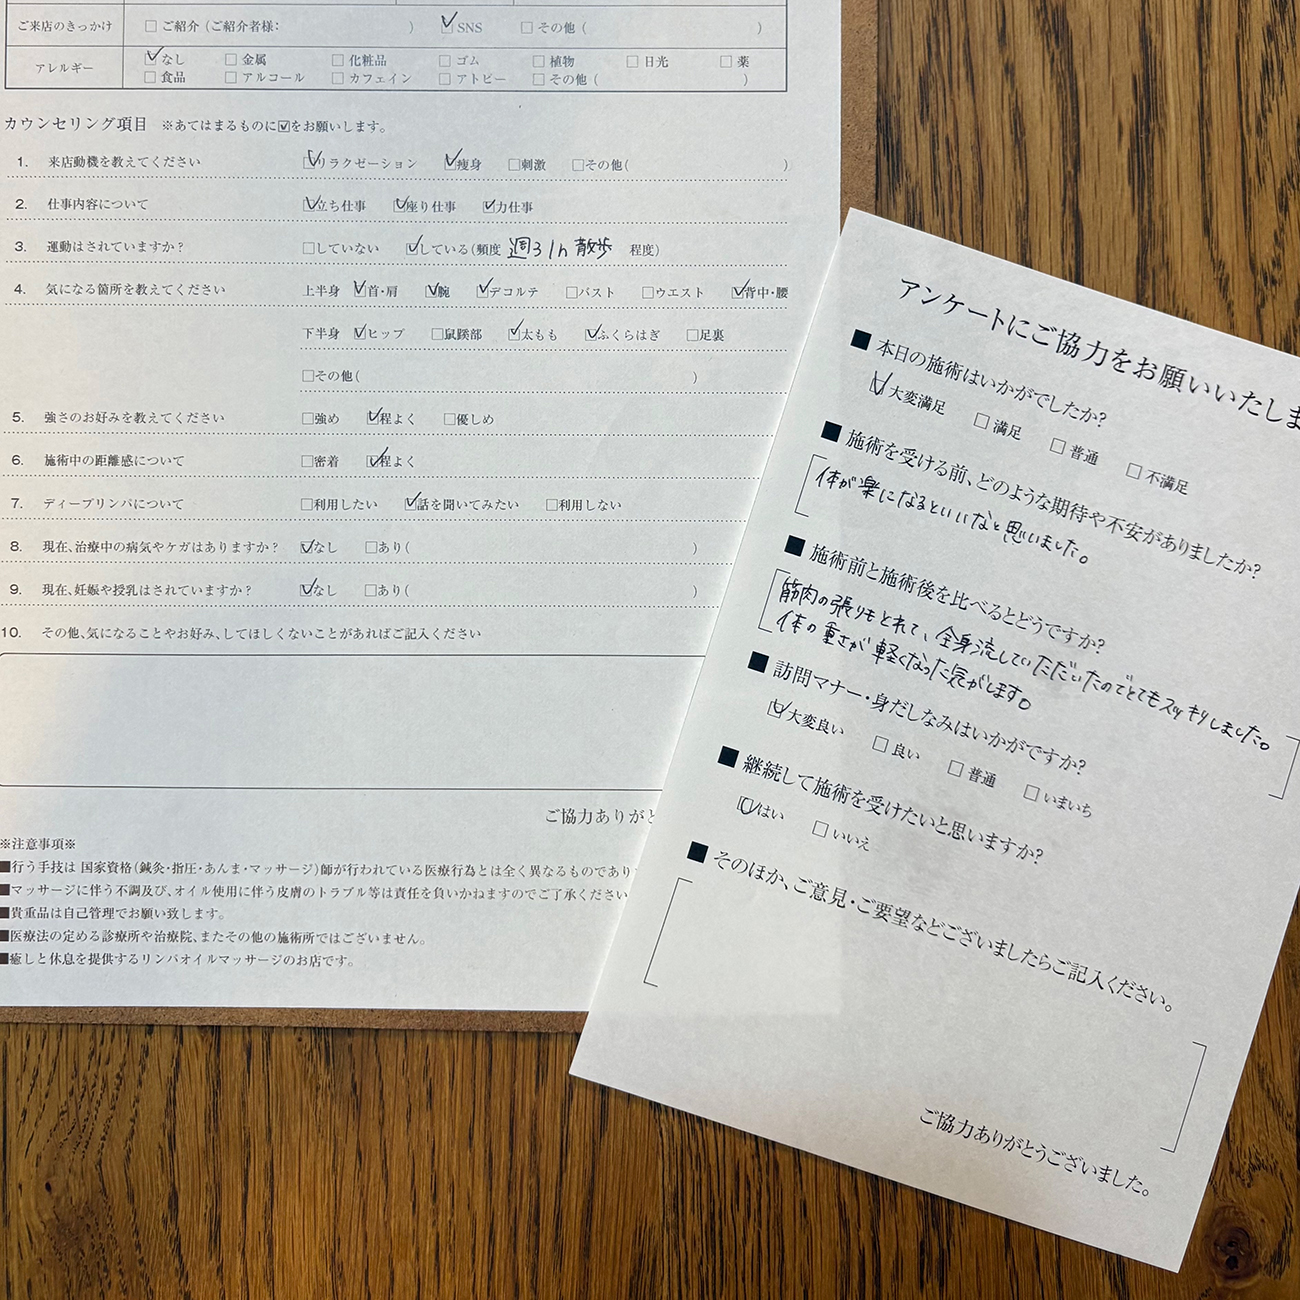 ご来店のきっかけ □ご紹介（ご紹介者様： ） ☑SNS □その他（ ）
アレルギー ☑なし □金属 □化粧品 □ゴム □植物 □日光 □薬
□食品 □アルコール □カフェイン □アトピー □その他（ ）
カウンセリング項目 ※あてはまるものに☑をお願いします。
1. 来店動機を教えてください ☑リラクゼーション ☑痩身 □刺激 □その他（ ）
2. 仕事内容について ☑立ち仕事 ☑座り仕事 ☑力仕事
3. 運動はされていますか？ □していない ☑している（頻度 週3 1h 散歩 程度）
4. 気になる箇所を教えてください 上半身 ☑首・肩 ☑腕 ☑デコルテ □バスト □ウエスト ☑背中・腰
下半身 ☑ヒップ □鼠蹊部 ☑太もも ☑ふくらはぎ □足裏
□その他（ ）
5. 強さのお好みを教えてください □強め ☑程よく □優しめ
6. 施術中の距離感について □密着 ☑程よく
7. ディープリンパについて □利用したい ☑話を聞いてみたい □利用しない
8. 現在、治療中の病気やケガはありますか？ ☑なし □あり（ ）
9. 現在、妊娠や授乳はされていますか？ ☑なし □あり（ ）
10. その他、気になることやお好み、してほしくないことがあればご記入ください
ご協力ありがと
※注意事項※
■行う手技は 国家資格（鍼灸・指圧・あんま・マッサージ）師が行われている医療行為とは全く異なるものであり
■マッサージに伴う不調及び、オイル使用に伴う皮膚のトラブル等は責任を負いかねますのでご了承ください
■貴重品は自己管理でお願い致します。
■医療法の定める診療所や治療院、またその他の施術所ではございません。
■癒しと休息を提供するリンパオイルマッサージのお店です。
アンケートにご協力をお願いいたしま
■ 本日の施術はいかがでしたか？
☑大変満足 □満足 □普通 □不満足
■ 施術を受ける前、どのような期待や不安がありましたか？
体が楽になるといいなと思いました。
■ 施術前と施術後を比べるとどうですか？
筋肉の張りもとれて、全身流していただいたのでとてもスッキリしました。
体の重さが軽くなった気がします。
■ 訪問マナー・身だしなみはいかがですか？
☑大変良い □良い □普通 □いまいち
■ 継続して施術を受けたいと思いますか？
☑はい □いいえ
■ そのほか、ご意見・ご要望などございましたらご記入ください。
ご協力ありがとうございました。